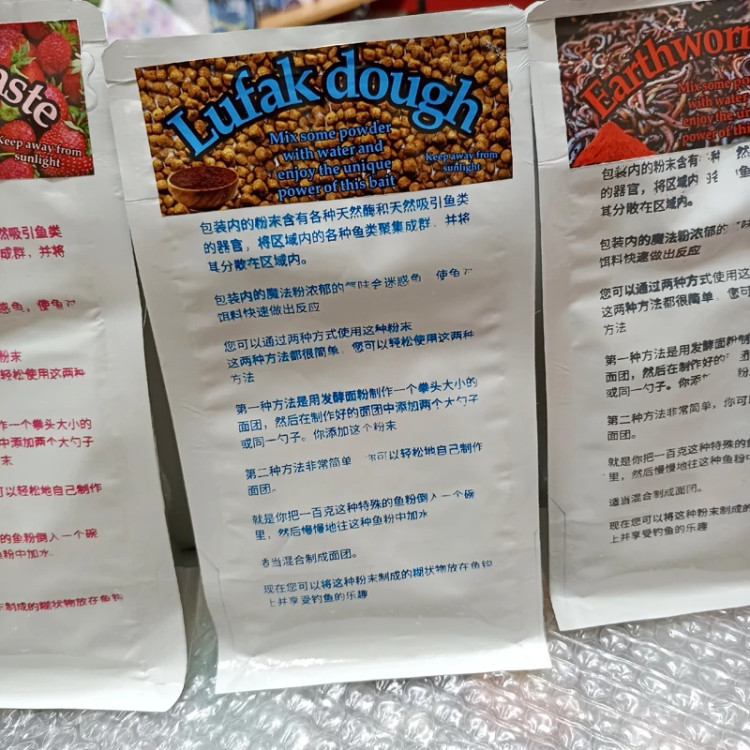 aste
Keep away from
sunlight
然吸引鱼类
成群，并将
粉末
轻松使用这两种
作一个拳头大小的
中添加两个大勺子
末
可以轻松地自己制作
的鱼粉倒入一个碗
鱼粉中加水
末制成的糊状物放在鱼钩
Lufak dough
Mix some powder
with water and
enjoy the unique
power of this bait
Keep away from
sunlight
包装内的粉末含有各种天然酶和天然吸引鱼类
的器官，将区域内的各种鱼类聚集成群，并将
其分散在区域内。
包装内的魔法粉浓郁的气味会迷惑鱼，使鱼
饵料快速做出反应
您可以通过两种方式使用这种粉末
这两种方法都很简单，您可以轻松使用这两种
方法
第一种方法是用发酵面粉制作一个拳头大小的
面团，然后在制作好的面团中添加两个大勺子
或同一勺子。你添加这个粉末
第二种方法非常简单 你可以轻松地自己制作
面团。
就是你把一百克这种特殊的鱼粉倒入一个碗
里，然后慢慢地往这种鱼粉中加水
适当混合制成面团。
现在您可以将这种粉末制成的糊状物放在鱼钩
上并享受钓鱼的乐趣
Earthworm
Mix some po
with water
enjoy the un
power of this
包装内的粉末含有 种 然
的器官，将区域内
其分散在区域内。
包装内的魔法粉浓郁的
饵料快速做出反应
您可以通过两种方式使用这
这两种方法都很简单 您可
方法
第一种方法是用发酵面粉制
面团，然后在制作好的
或同一勺子。你添 粉
第二种方法非常简单，你可
面团。
就是你把一百克这种特殊的
里，然后慢慢地往这种鱼粉中
适当混合制成面团。
现在您可以将这种粉末制成的
上并享受钓鱼的乐趣